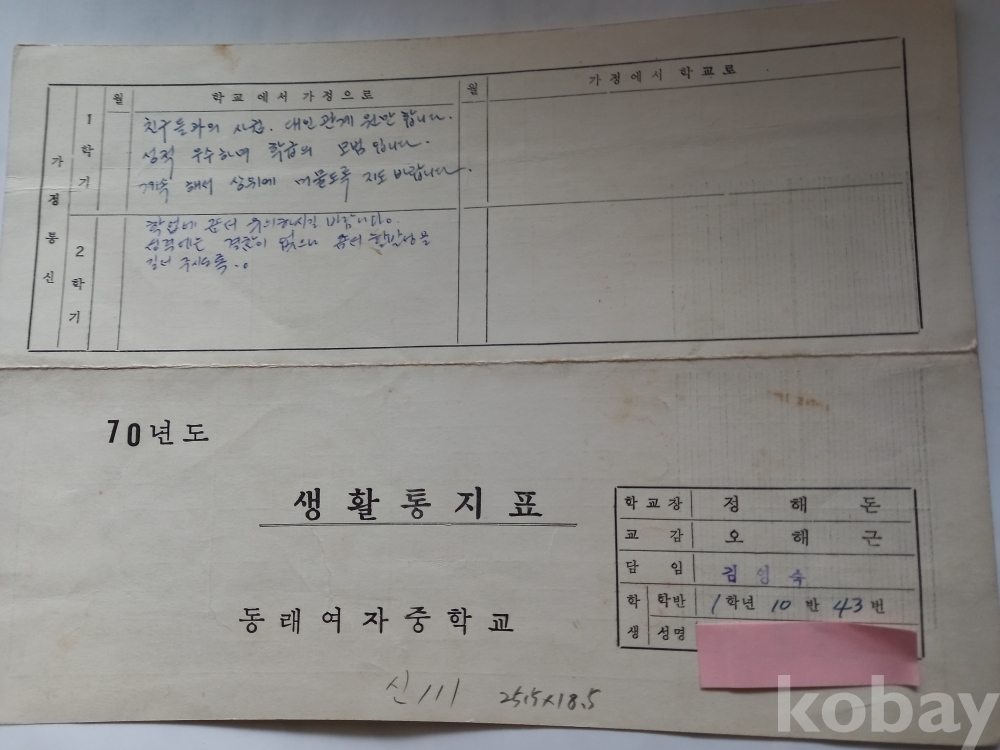 가정통신
월 학교에서 가정으로 월 가정에서 학교로
1학기
친구들과의 사귐. 대인관계 원만 합니다.
성적 우수하며 학급의 모범 입니다.
계속 해서 상위에 머물도록 지도 바랍니다.
2학기
학업에 유의하시길 바랍니다.
성적에는 없으나
70년도
생활통지표
동래여자중학교
학교장 정해돈
교감 오해근
담임 김영숙
학생 학반 1학년 10반 43번
성명
신111 25.5×18.5
kobay